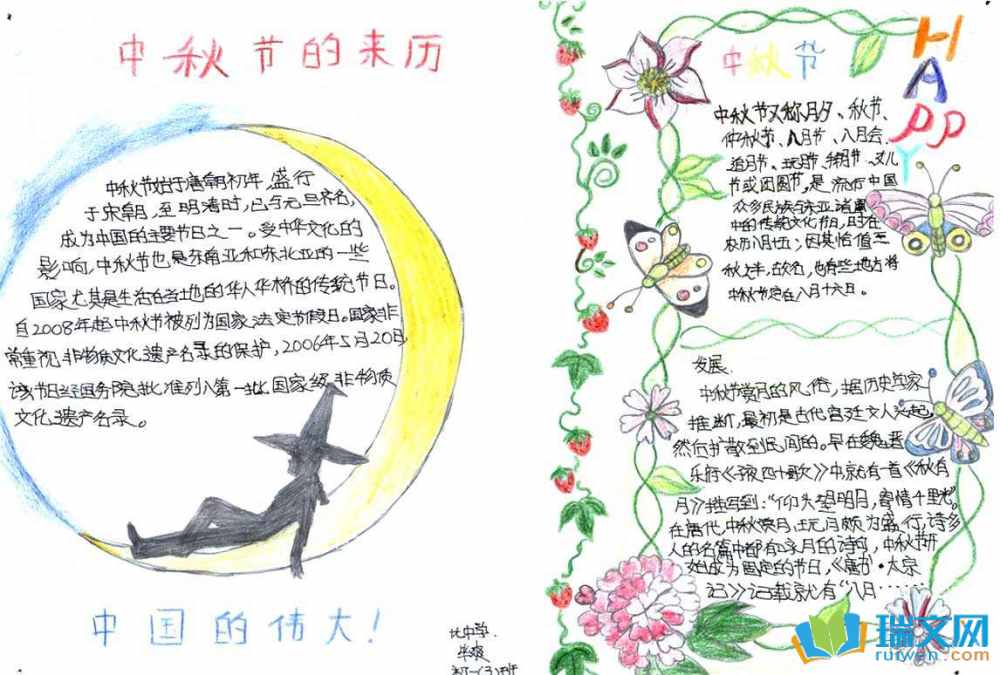 中秋节的来历
中秋节始于唐朝初年,盛行
于宋朝,至明清时,已与元旦齐名,
成为中国的主要节日之一。受中华文化的
影响,中秋节也是东南亚和东北亚的一些
国家尤其是生活在当地的华人华桥的传统节日。
自2008年起中秋节被列为国家法定节假日。国家非
常重视非物质文化遗产名录的保护,2006年5月20日,
该节日经国务院批准列入第一批国家级非物质
文化遗产名录。
中国的伟大!
中秋节
HAPPY
中秋节又称月夕、秋节、
仲秋节、八月节、八月会、
追月节、玩月节、拜月节、女儿
节或团圆节,是流行中国
众多民族与东亚诸国
中的传统文化节日,时在
农历八月十五;因其恰值三
秋之半,故名,也有些地方将
中秋节定在八月十六日。
发展
中秋节赏月的风俗,据历史专家
推断,最初是古代宫廷文人兴起,
然后扩散至民间的。早在魏晋
乐府《子夜四十歌》中,就有一首《秋有
月》描写到:“仰头望明月,寄情千里光”。
在唐代,中秋赏月、玩月颇为盛行,许多
人的名篇中都有咏月的诗句,中秋节开
始成为固定的节日,《唐书·太宗
记》记载就有“八月……
瑞文网
ruiwen.com